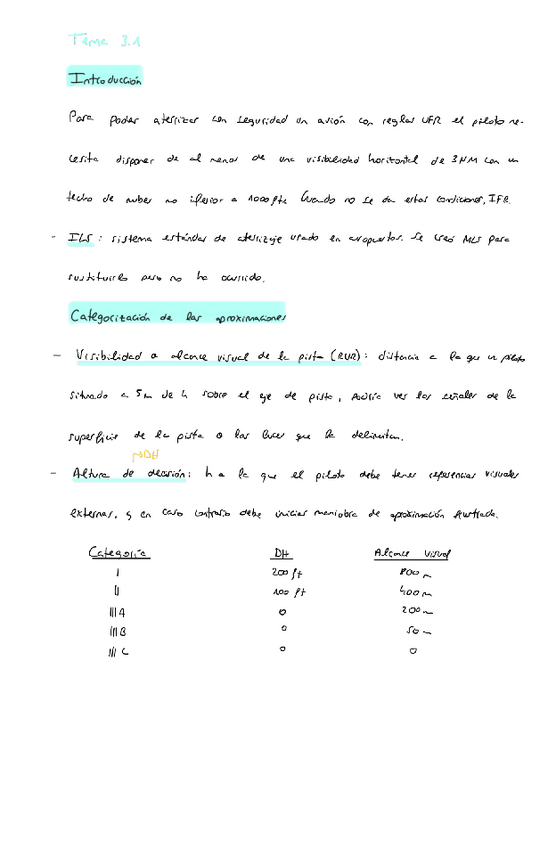 Tema 3.1
Introducción
Para poder aterrizar con seguridad un avión con reglas VFR el piloto ne-
cesita disponer de al menos de una visibilidad horizontal de 3NM con un
techo de nubes no inferior a 1000fts. Cuando no se dan estas condiciones, IFR.
- ILS: sistema estándar de aterrizaje usado en aeropuertos. Se creó MLS para
sustituirlo pero no ha ocurrido.
Categorización de las aproximaciones
- Visibilidad o alcance visual de la pista (RVR): distancia a la que un piloto
situado a 5m de h sobre el eje de pista, podría ver las señales de la
superficie de la pista o las luces que la delimitan.
MDH
- Altura de decisión: h a la que el piloto debe tener referencias visuales
externas, y en caso contrario debe iniciar maniobra de aproximación frustrada.
Categoría DH Alcance visual
I 200 ft 800 m
II 100 ft 400 m
III A 0 200 m
III B 0 50 m
III C 0 0